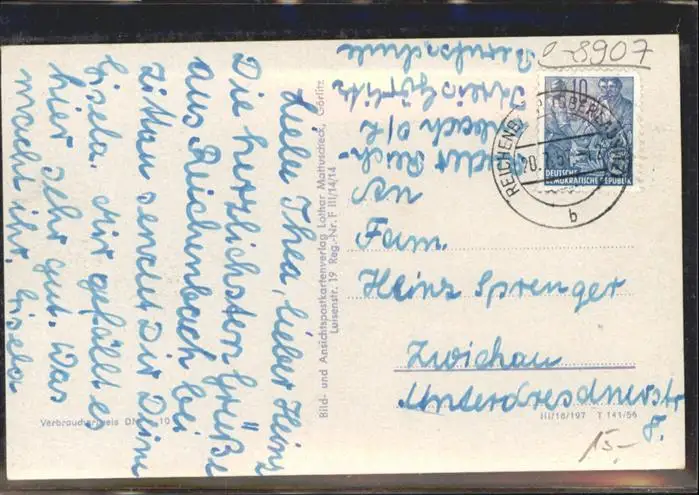 Liebe Thea, lieber Heinz
Die herzlichsten Grüße
aus Reichenbach bei
Zittau sendet Dir Deine
Gisela. Mir gefällt es
hier sehr gut. Was
macht ihr, Gisela
Bild- und Ansichtspostkartenverlag Lothar Mattuscheck, Görlitz
Luisenstr. 19 Reg.-Nr. F III/14/14
Verbraucherpreis DM 10
Reichenbach o/L
Kreis Görlitz
Berufsschule
e-8907
10
DEUTSCHE
DEMOKRATISCHE REPUBLIK
REICHENB
b
An
Fam.
Heinz Sprenger
Zwickau
Unterdresdnerstr
8.
III/18/197 T 141/56
15,-